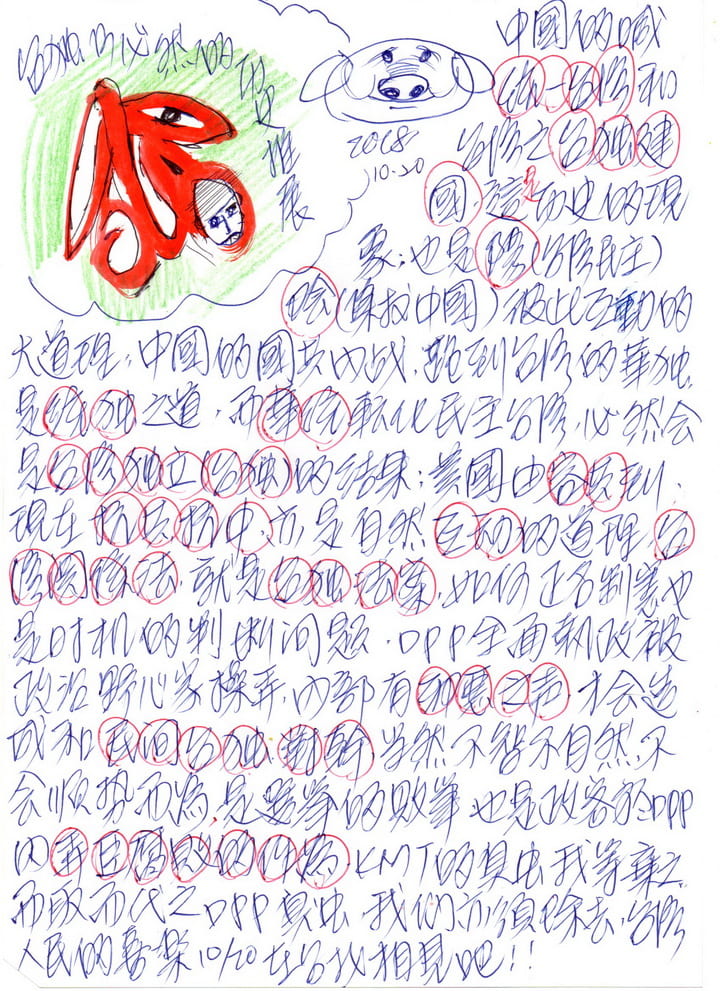 台獨乃必然的
历史推展
2018
10.20
中國的喊
統一台灣和
台灣之台獨建
國,這是历史的現
象;也是陽(台灣民主)
陰(集权中國)彼此互動的
大道理,中國的國共內战,跑到台灣的華独
是独之道,而華統転化民主台灣,必然会
是台灣独立(台独)的结果;美國由容共到
現在抗共抗中,亦是自然互动的道理,台
湾関係法,就是台独法案,如何正名制憲也
是时机的判断问题.DPP全面執政被
政治野心家操弄,內部有和惡之声,才会造
成和民间台独對幹,当然不智不自然,不
会順势而為,是選举的败筆,也是政客於DPP
内弄臣腐败的作為,KMT的臭虫我等棄之,
而取而代之DPP臭虫,我们亦須除去,台灣
人民的喜樂10/20在台北相見吧!!